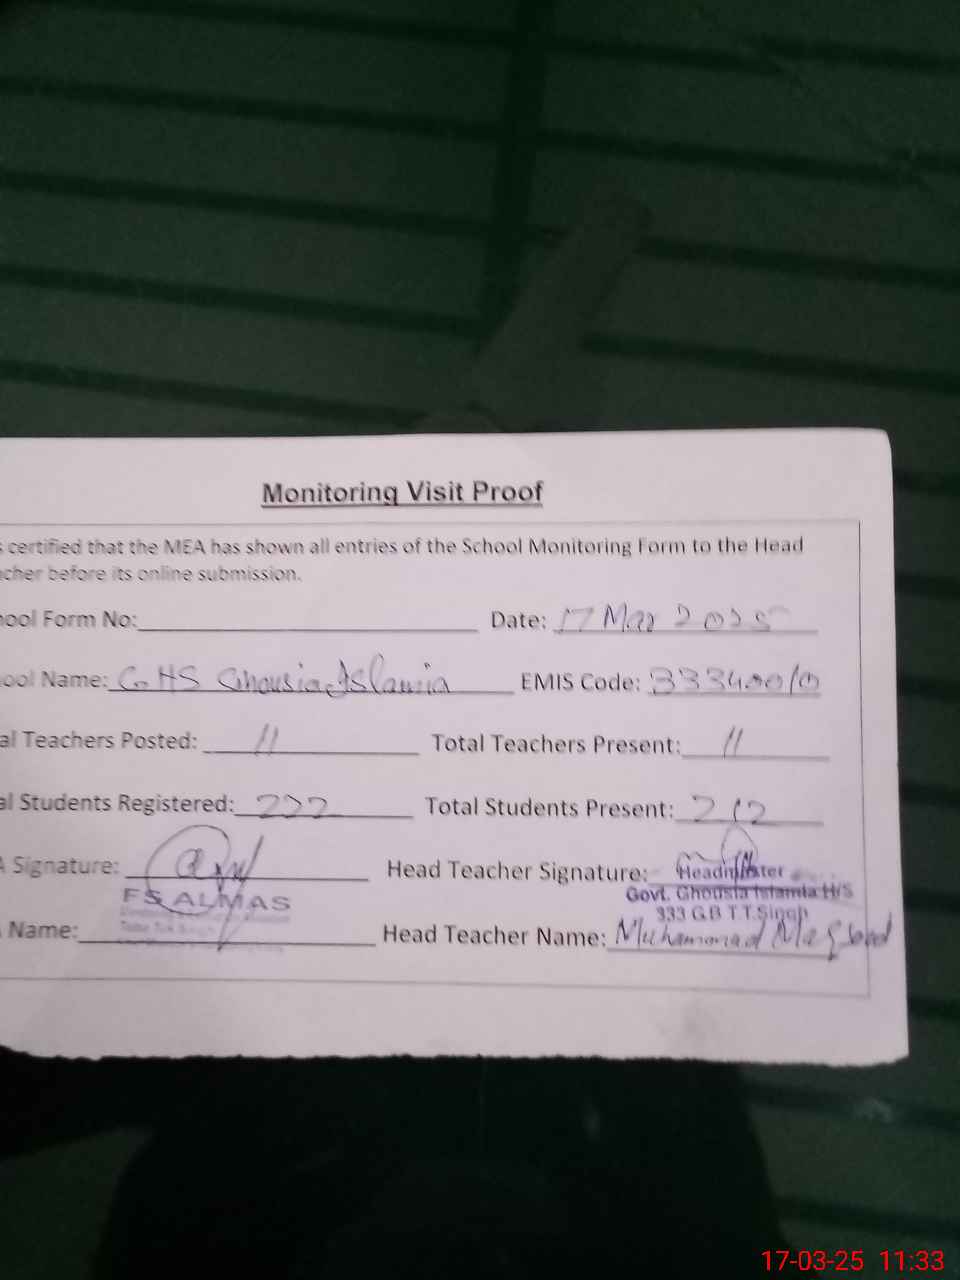 Monitoring Visit Proof
s certified that the MEA has shown all entries of the School Monitoring Form to the Head
cher before its online submission.
ool Form No: Date: 17 Mar 2025
ool Name: GHS Ghousia Islamia EMIS Code: 33340010
al Teachers Posted: 11 Total Teachers Present: 11
al Students Registered: 222 Total Students Present: 212
A Signature: Head Teacher Signature:
Headmaster
FS ALMAS Govt. Ghousia Islamia H/S
333 G.B T.T.Singh
Name: Head Teacher Name: Muhammad Maqsood
17-03-25 11:33